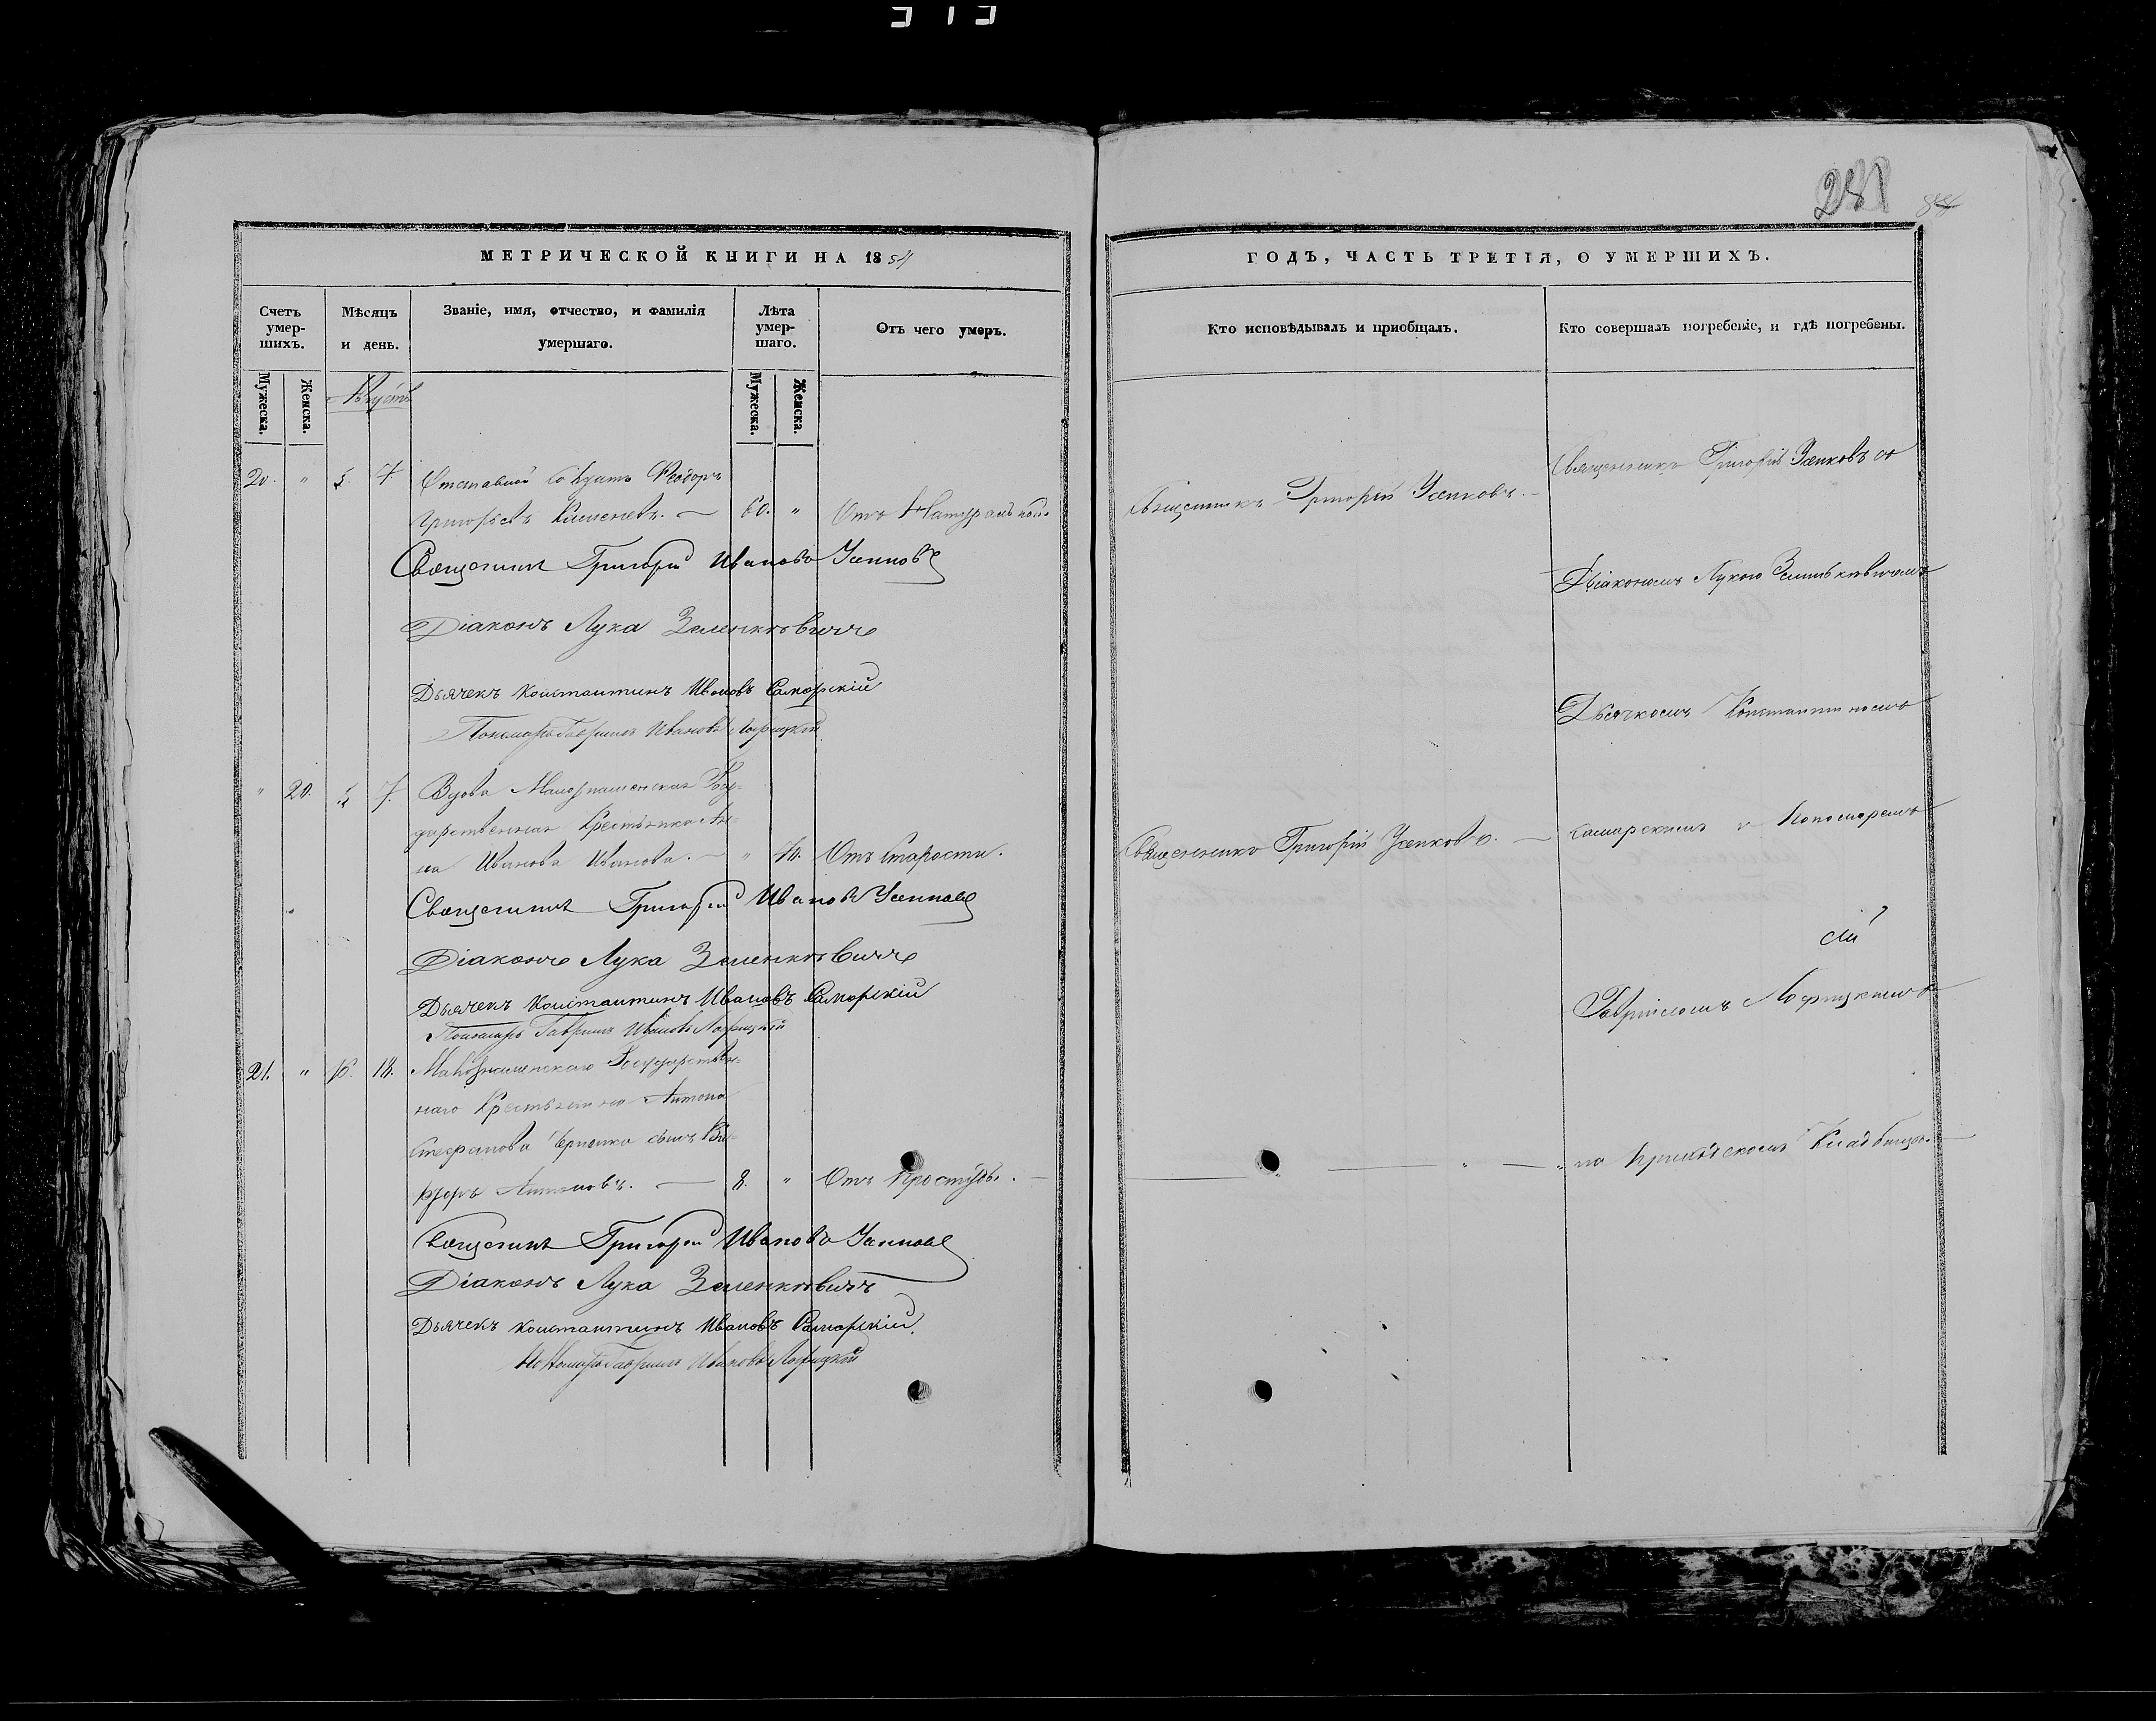 313
281
МЕТРИЧЕСКОЙ КНИГИ НА 1854
Счетъ умер-шихъ.
Мѣсяцъ и день.
Званіе, имя, отчество, и фамилія умершаго.
Лѣта умер-шаго.
Отъ чего умеръ.
Мужеска.
Женска.
Мужеска.
Женска.
Августъ
20. " 5. 7. Отставной Солдатъ Феодоръ
Григорьевъ 60. " Отъ Натуральной.
Священникъ Григорій Ивановъ Усенковъ
Діаконъ Лука Зеленкѣвичъ
Дьячекъ Константинъ Ивановъ Самарскій
Пономарь Гавріилъ Ивановъ Лофицкій
" 20. 5. 7. Вдова Госу-
дарственная Крестьянка Ан-
на Иванова Иванова. — " 70. Отъ Старости.
Священникъ Григорій Ивановъ Усенковъ
Діаконъ Лука Зеленкѣвичъ
Дьячекъ Константинъ Ивановъ Самарскій
Пономарь Гавріилъ Ивановъ Лофицкій
21. " 16. 18. Государствен-
наго Крестьянина Антона
Стефанова сынъ
Антоновъ. — 8. " Отъ Простуды.
Священникъ Григорій Ивановъ Усенковъ
Діаконъ Лука Зеленкѣвичъ
Дьячекъ Константинъ Ивановъ Самарскій
Пономарь Гавріилъ Ивановъ Лофицкій
ГОДЪ, ЧАСТЬ ТРЕТІЯ, О УМЕРШИХЪ.
Кто исповѣдывалъ и пріобщалъ.
Кто совершалъ погребеніе, и гдѣ погребены.
Священникъ Григорій Усенковъ съ
Священникъ Григорій Усенковъ. —
Діакономъ Лукою Зеленкѣвичемъ
Дьячкомъ Константиномъ
Самарскимъ и Пономаремъ
Священникъ Григорій Усенковъ. —
Гавріиломъ Лофицкимъ
на приходскомъ Кладбищѣ. —